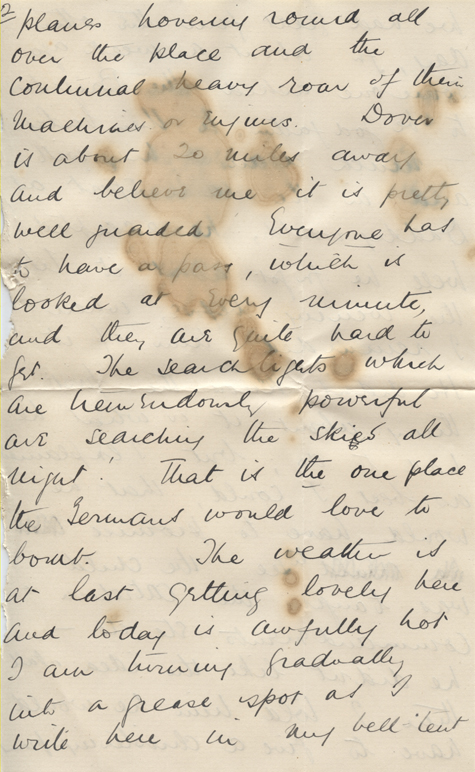 2
planes hovering round all
over the place and the
continual heavy roar of their
machines or engines. Dover
is about 20 miles away
and believe me it is pretty
well guarded. Everyone has
to have a pass, which is
looked at every minute,
and they are quite hard to
get. The searchlights which
are tremendously powerful
are searching the skies all
night! That is the one place
the Germans would love to
bomb. The weather is
at last getting lovely here
and today is awfully hot
I am turning gradually
into a grease spot as I
write here in my bell-tent